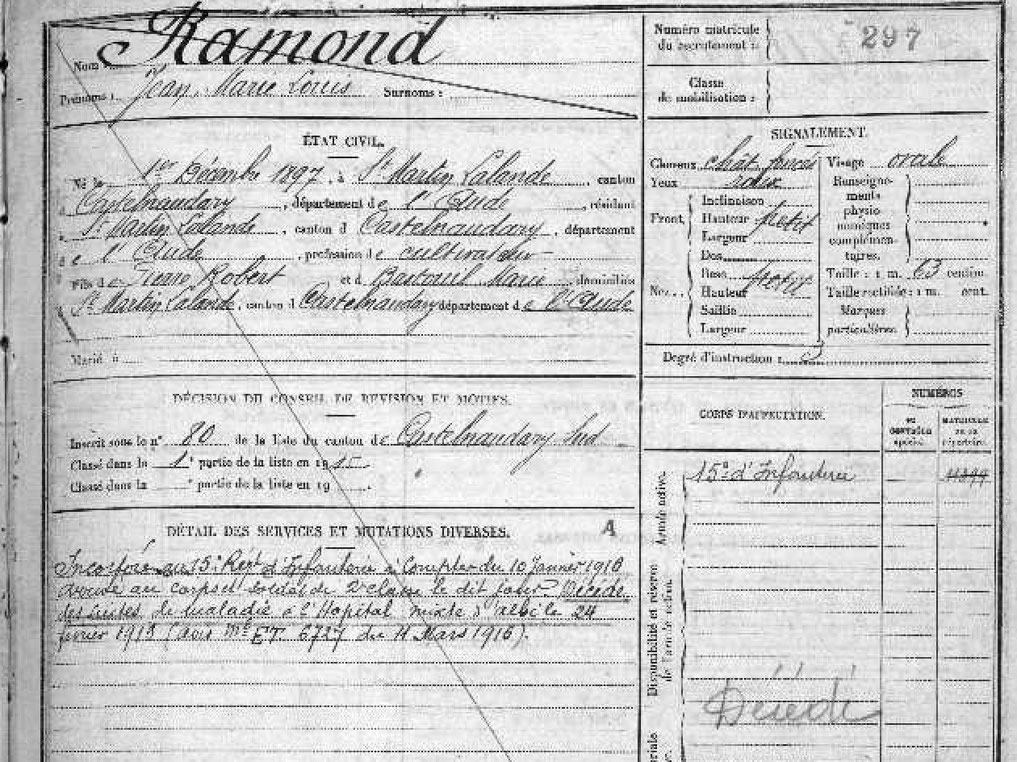 Nom Ramond
Prénoms : Jean Marie Louis Surnoms :
Numéro matricule
du recrutement :
297
Classe
de mobilisation :
ÉTAT CIVIL.
Né le 1er Décembre 1897, à St Martin Lalande, canton
Castelnaudary, département de l'Aude, résidant
St Martin Lalande, canton d Castelnaudary, département
de l'Aude, profession de cultivateur
Fils de Pierre Robert et d Marie domiciliés
St Martin Lalande, canton d Castelnaudary département de l'Aude
Marié à
SIGNALEMENT.
Cheveux chât. foncés
Yeux
Front
Inclinaison
Hauteur petit
Largeur
Nez
Dos
Base
Hauteur petit
Saillie
Largeur
Visage ovale
Renseigne-
ments
physio-
nomiques
complémen-
taires.
Taille : 1 m. 63 centim.
Taille rectifiée : 1 m. cent.
Marques
particulières
Degré d'instruction : 3
DÉCISION DU CONSEIL DE REVISION ET MOTIFS.
Inscrit sous le n° 80 de la liste du canton de Castelnaudary Sud
Classé dans la 1e partie de la liste en 1915.
Classé dans la e partie de la liste en 19
DÉTAIL DES SERVICES ET MUTATIONS DIVERSES.
A
Incorporé au 15e Régt d'Infanterie à Compter du 10 Janvier 1916
au corps soldat de 2e classe le dit jour Décédé
des suites de maladie à l'Hopital mixte d'Albi le 24
février 1916 (avis ET 6727 du 11 Mars 1916).
CORPS D'AFFECTATION.
NUMÉROS
DU
CONTRÔLE
spécial
MATRICULE
DE LA
répertoire.
Armée active.
15e d'Infanterie
Disponibilité et réserve
de l'armée active.
Décédé